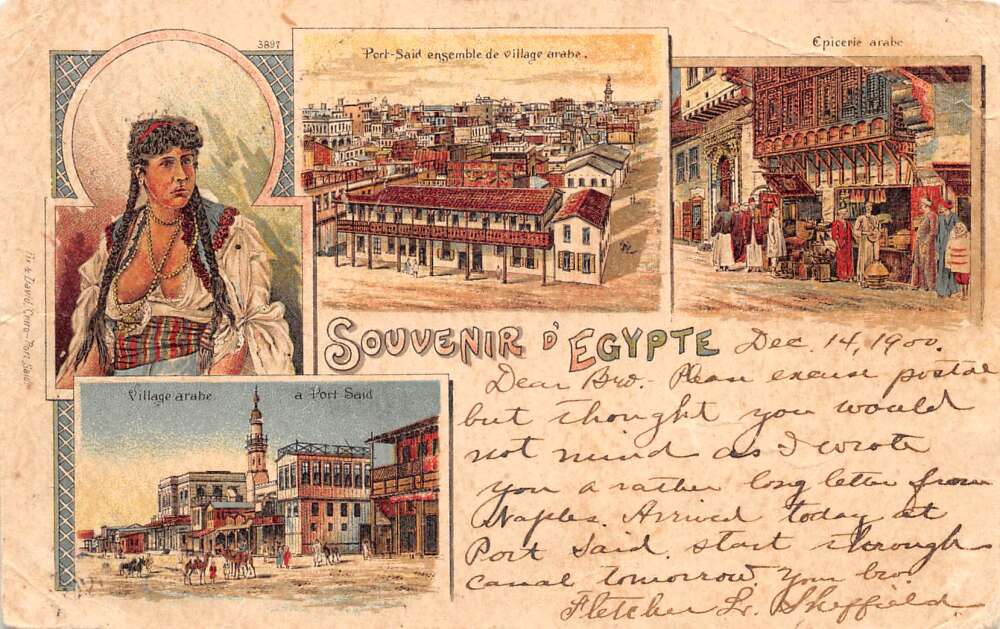 3897
Port-Said ensemble de village arabe.
Epicerie arabe
SOUVENIR D'EGYPTE
Village arabe a Port Said
David, Cairo-Port Said
Dec. 14, 1900.
Dear Bro. Please excuse postal
but thought you would
not mind as I wrote
you a rather long letter from
Naples. Arrived today at
Port Said. start through
canal tomorrow. Your bro.
Fletcher L. Sheffield.